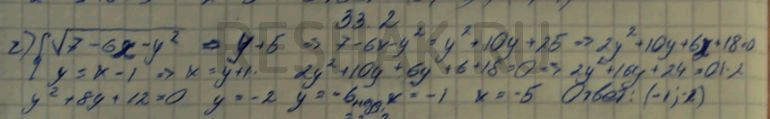 33.2
г) { √7-6x-y² = y+5 ⇒ 7-6x-y² = y²+10y+25 ⇒ 2y²+10y+6x+18=0
y = x-1 ⇒ x = y+1. 2y²+10y+6y+6+18=0 ⇒ 2y²+16y+24=0 |:2
y²+8y+12=0 y=-2 y=-6 x=-1 x=-5 Ответ: (-1;-2)